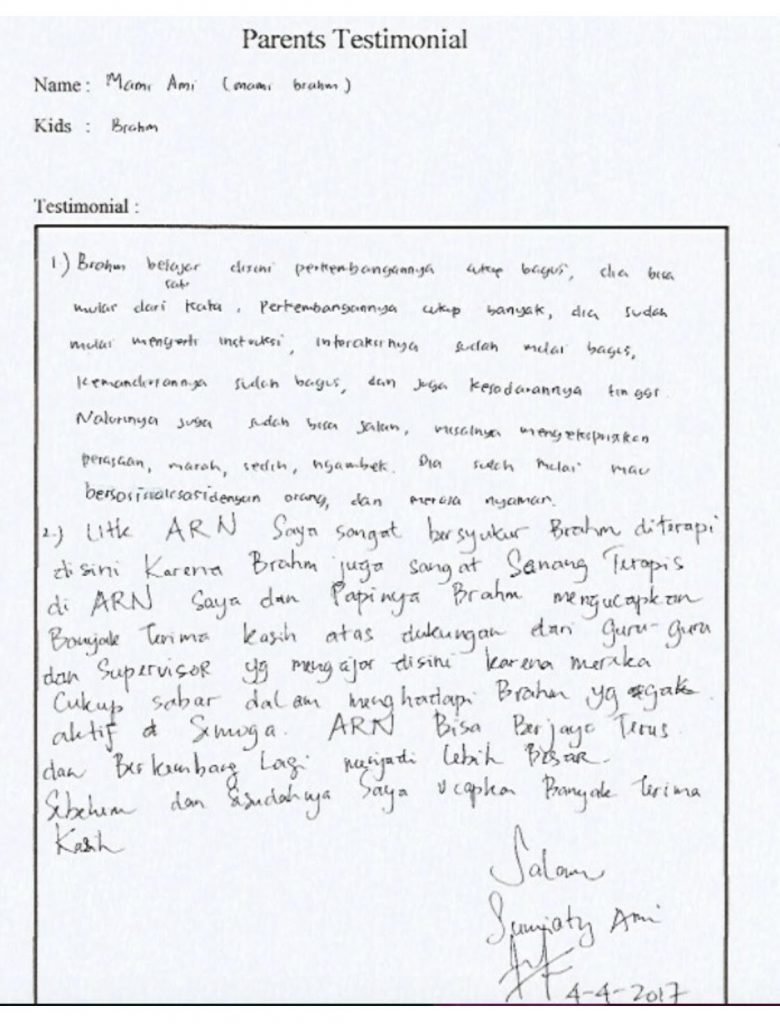 Parents Testimonial
Name : Mami Ami (mami brahm)
Kids : Brahm
Testimonial :
1.) Brahm belajar disini perkembangannya cukup bagus, dia bisa
satu
mulai dari kata. Perkembangannya cukup banyak, dia sudah
mulai mengerti instruksi, interaksinya sudah mulai bagus,
kemandiriannya sudah bagus, dan juga kesadarannya tinggi.
Nalurinya juga sudah bisa jalan, misalnya mengekspresikan
perasaan, marah, sedih, ngambek. Dia sudah mulai mau
bersosialisasi dengan orang, dan merasa nyaman.
2.) Utk ARN Saya sangat bersyukur Brahm diterapi
disini Karena Brahm juga sangat Senang Terapis
di ARN Saya dan Papinya Brahm mengucapkan
Banyak Terima kasih atas dukungan dari Guru-guru
dan Supervisor yg mengajar disini karena mereka
Cukup sabar dalam menghadapi Brahm yg agak
aktif Semoga ARN Bisa Berjaya Terus
dan Berkembang Lagi menjadi Lebih Besar.
Sebelum dan Sesudahnya Saya ucapkan Banyak Terima
Kasih
Salam
Sumiaty Ami
4-4-2017